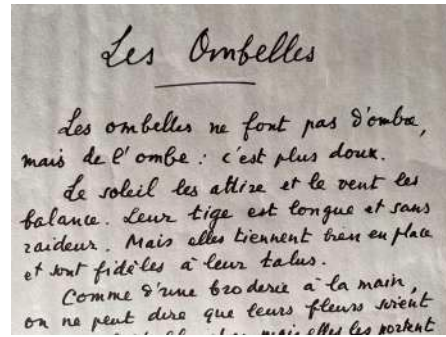 Les Ombelles
Les ombelles ne font pas d'ombre,
mais de l'ombe : c'est plus doux.
Le soleil les attire et le vent les
balance. Leur tige est longue et sans
raideur. Mais elles tiennent bien en place
et sont fidèles à leur talus.
Comme d'une broderie à la main,
on ne peut dire que leurs fleurs soient
mais elles les portent